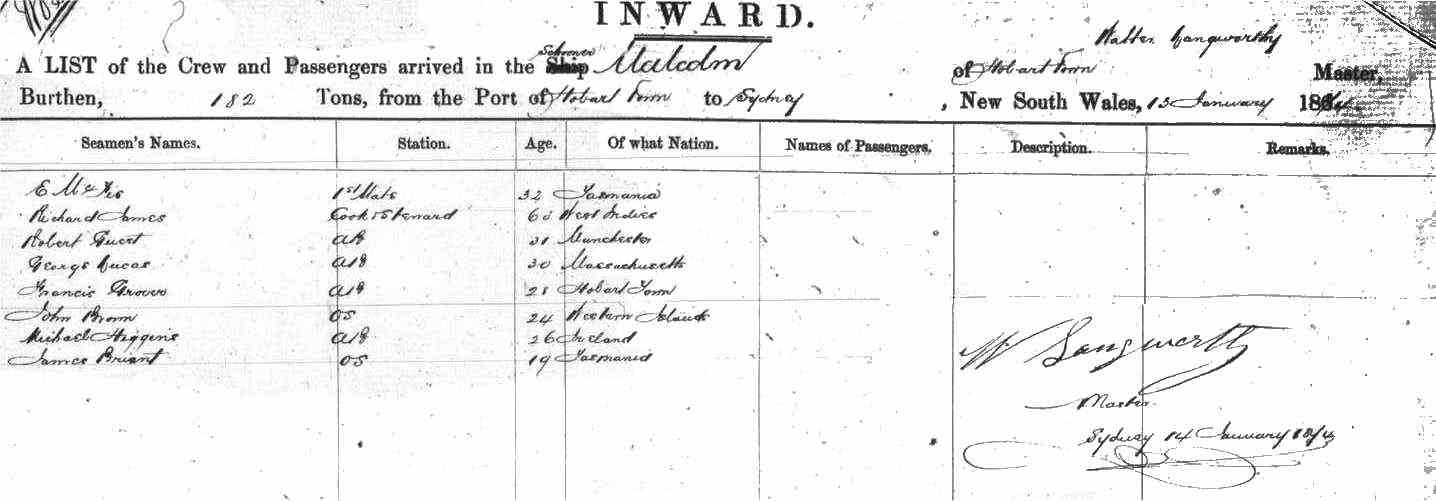 INWARD.
Walter Langworthy
A LIST of the Crew and Passengers arrived in the Schooner Ship Malcolm of Hobart Town Master,
Burthen, 182 Tons, from the Port of Hobart Town to Sydney, New South Wales, 13 January 18
Seamen's Names. Station. Age. Of what Nation. Names of Passengers. Description. Remarks.
1st Mate 32 Tasmania
Richard James Cook & Steward West Indies
Robert Guest AB 31 Manchester
George Lucas AB 30 Massachusetts
Francis Grover AB 28 Hobart Town
John Brown OS 24 Western Islands
Michael Higgins AB 26 Ireland
James Briant OS 19 Tasmania
W Langworthy
Master
Sydney 14 January